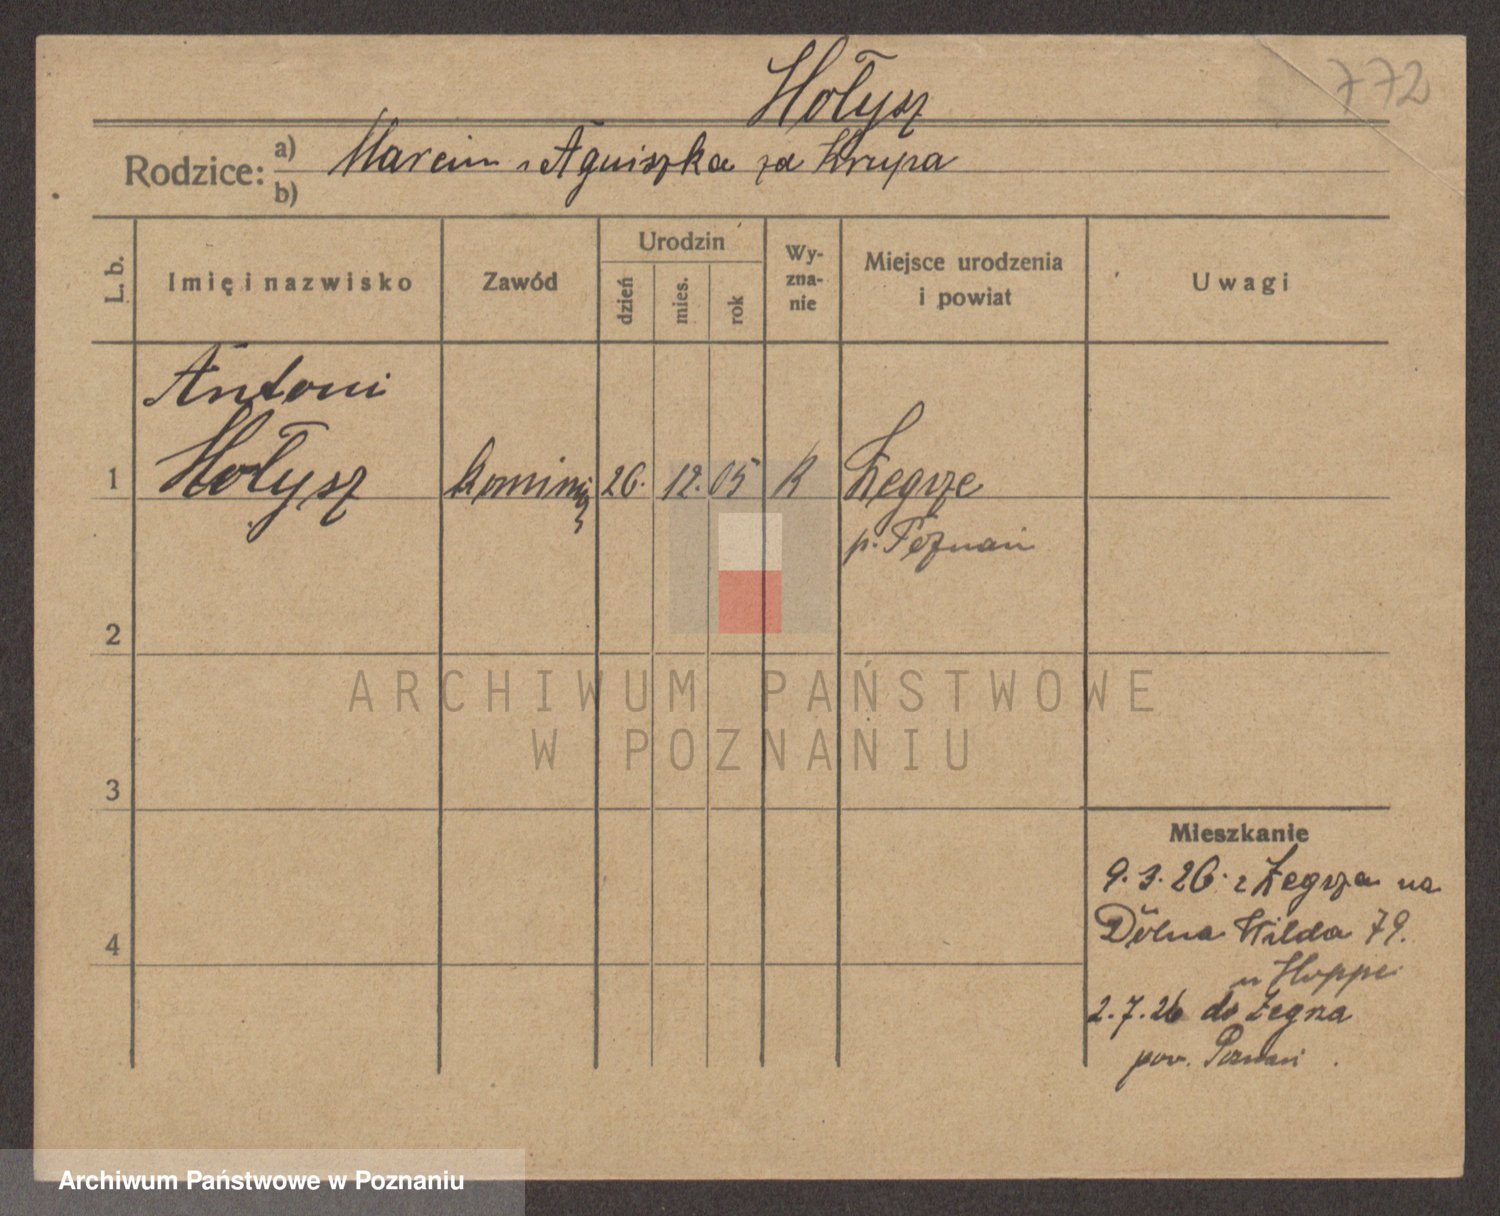 Hołysz
772
Rodzice:
a) Marcin i Agniszka za Krupa
b)
L. b.
Imię i nazwisko
Zawód
Urodzin
dzień
mies.
rok
Wy-
zna-
nie
Miejsce urodzenia
i powiat
Uwagi
Antoni
1 Hołysz kominia 26. 12. 05 K Żegrze
p. Poznań
2
3
4
ARCHIWUM PAŃSTWOWE
W POZNANIU
Mieszkanie
9. 3. 26. z Żegrza na
Dolna Wilda 79.
u Hoppe
2. 7. 26 do Żegrza
pow. Poznań
Archiwum Państwowe w Poznaniu